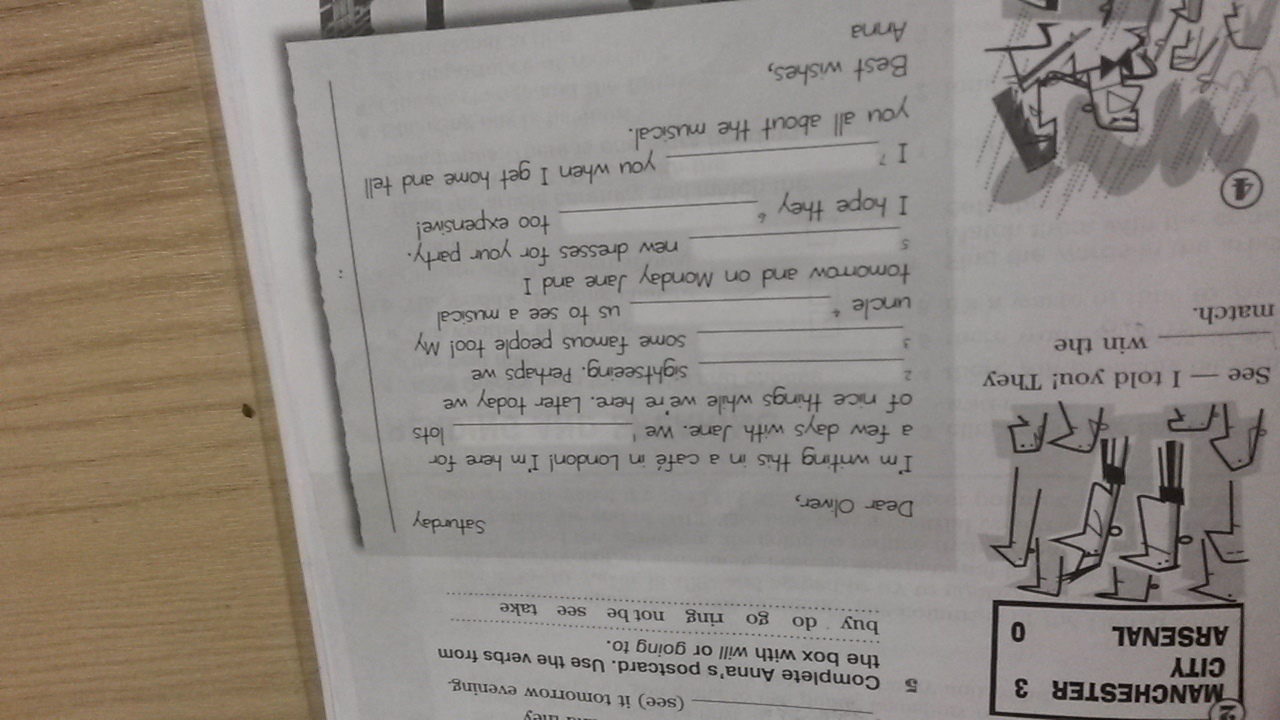 2
MANCHESTER 3
CITY
ARSENAL 0
See — I told you! They
win the
match.
4
(see) it tomorrow evening.
5 Complete Anna's postcard. Use the verbs from
the box with will or going to.
buy do go ring not be see take
Saturday
Dear Oliver,
I'm writing this in a café in London! I'm here for
a few days with Jane. We 1 lots
of nice things while we're here. Later today we
2 sightseeing. Perhaps we
3 some famous people too! My
uncle 4 us to see a musical
tomorrow and on Monday Jane and I
5 new dresses for your party.
I hope they 6 too expensive!
I 7 you when I get home and tell
you all about the musical.
Best wishes,
Anna